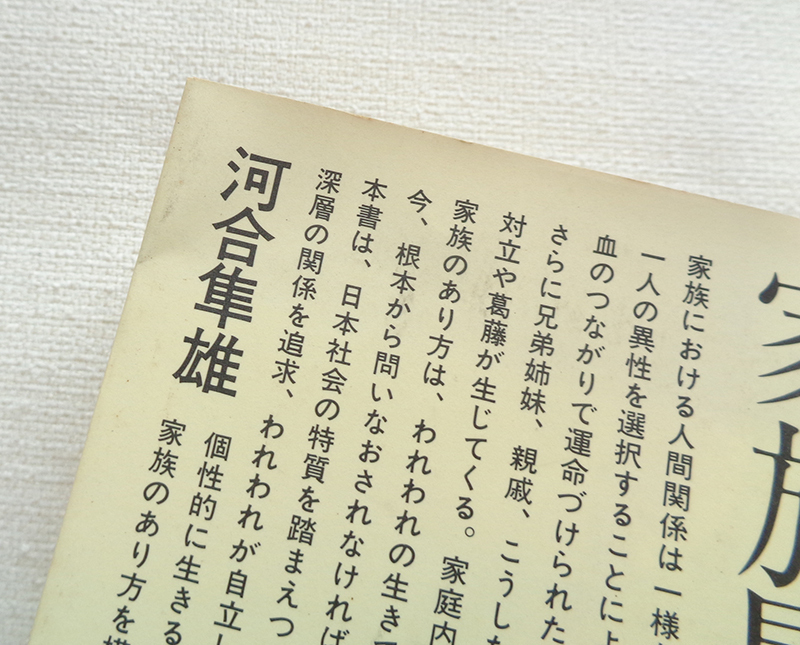 家族
家族における人間関係は一様
一人の異性を選択することによ
血のつながりで運命づけられた
さらに兄弟姉妹、親戚、こうした
対立や葛藤が生じてくる。家庭内
家族のあり方は、われわれの生き
今、根本から問いなおされなければ
本書は、日本社会の特質を踏まえつ
深層の関係を追求、われわれが自立し
個性的に生きる
家族のあり方を
河合隼雄